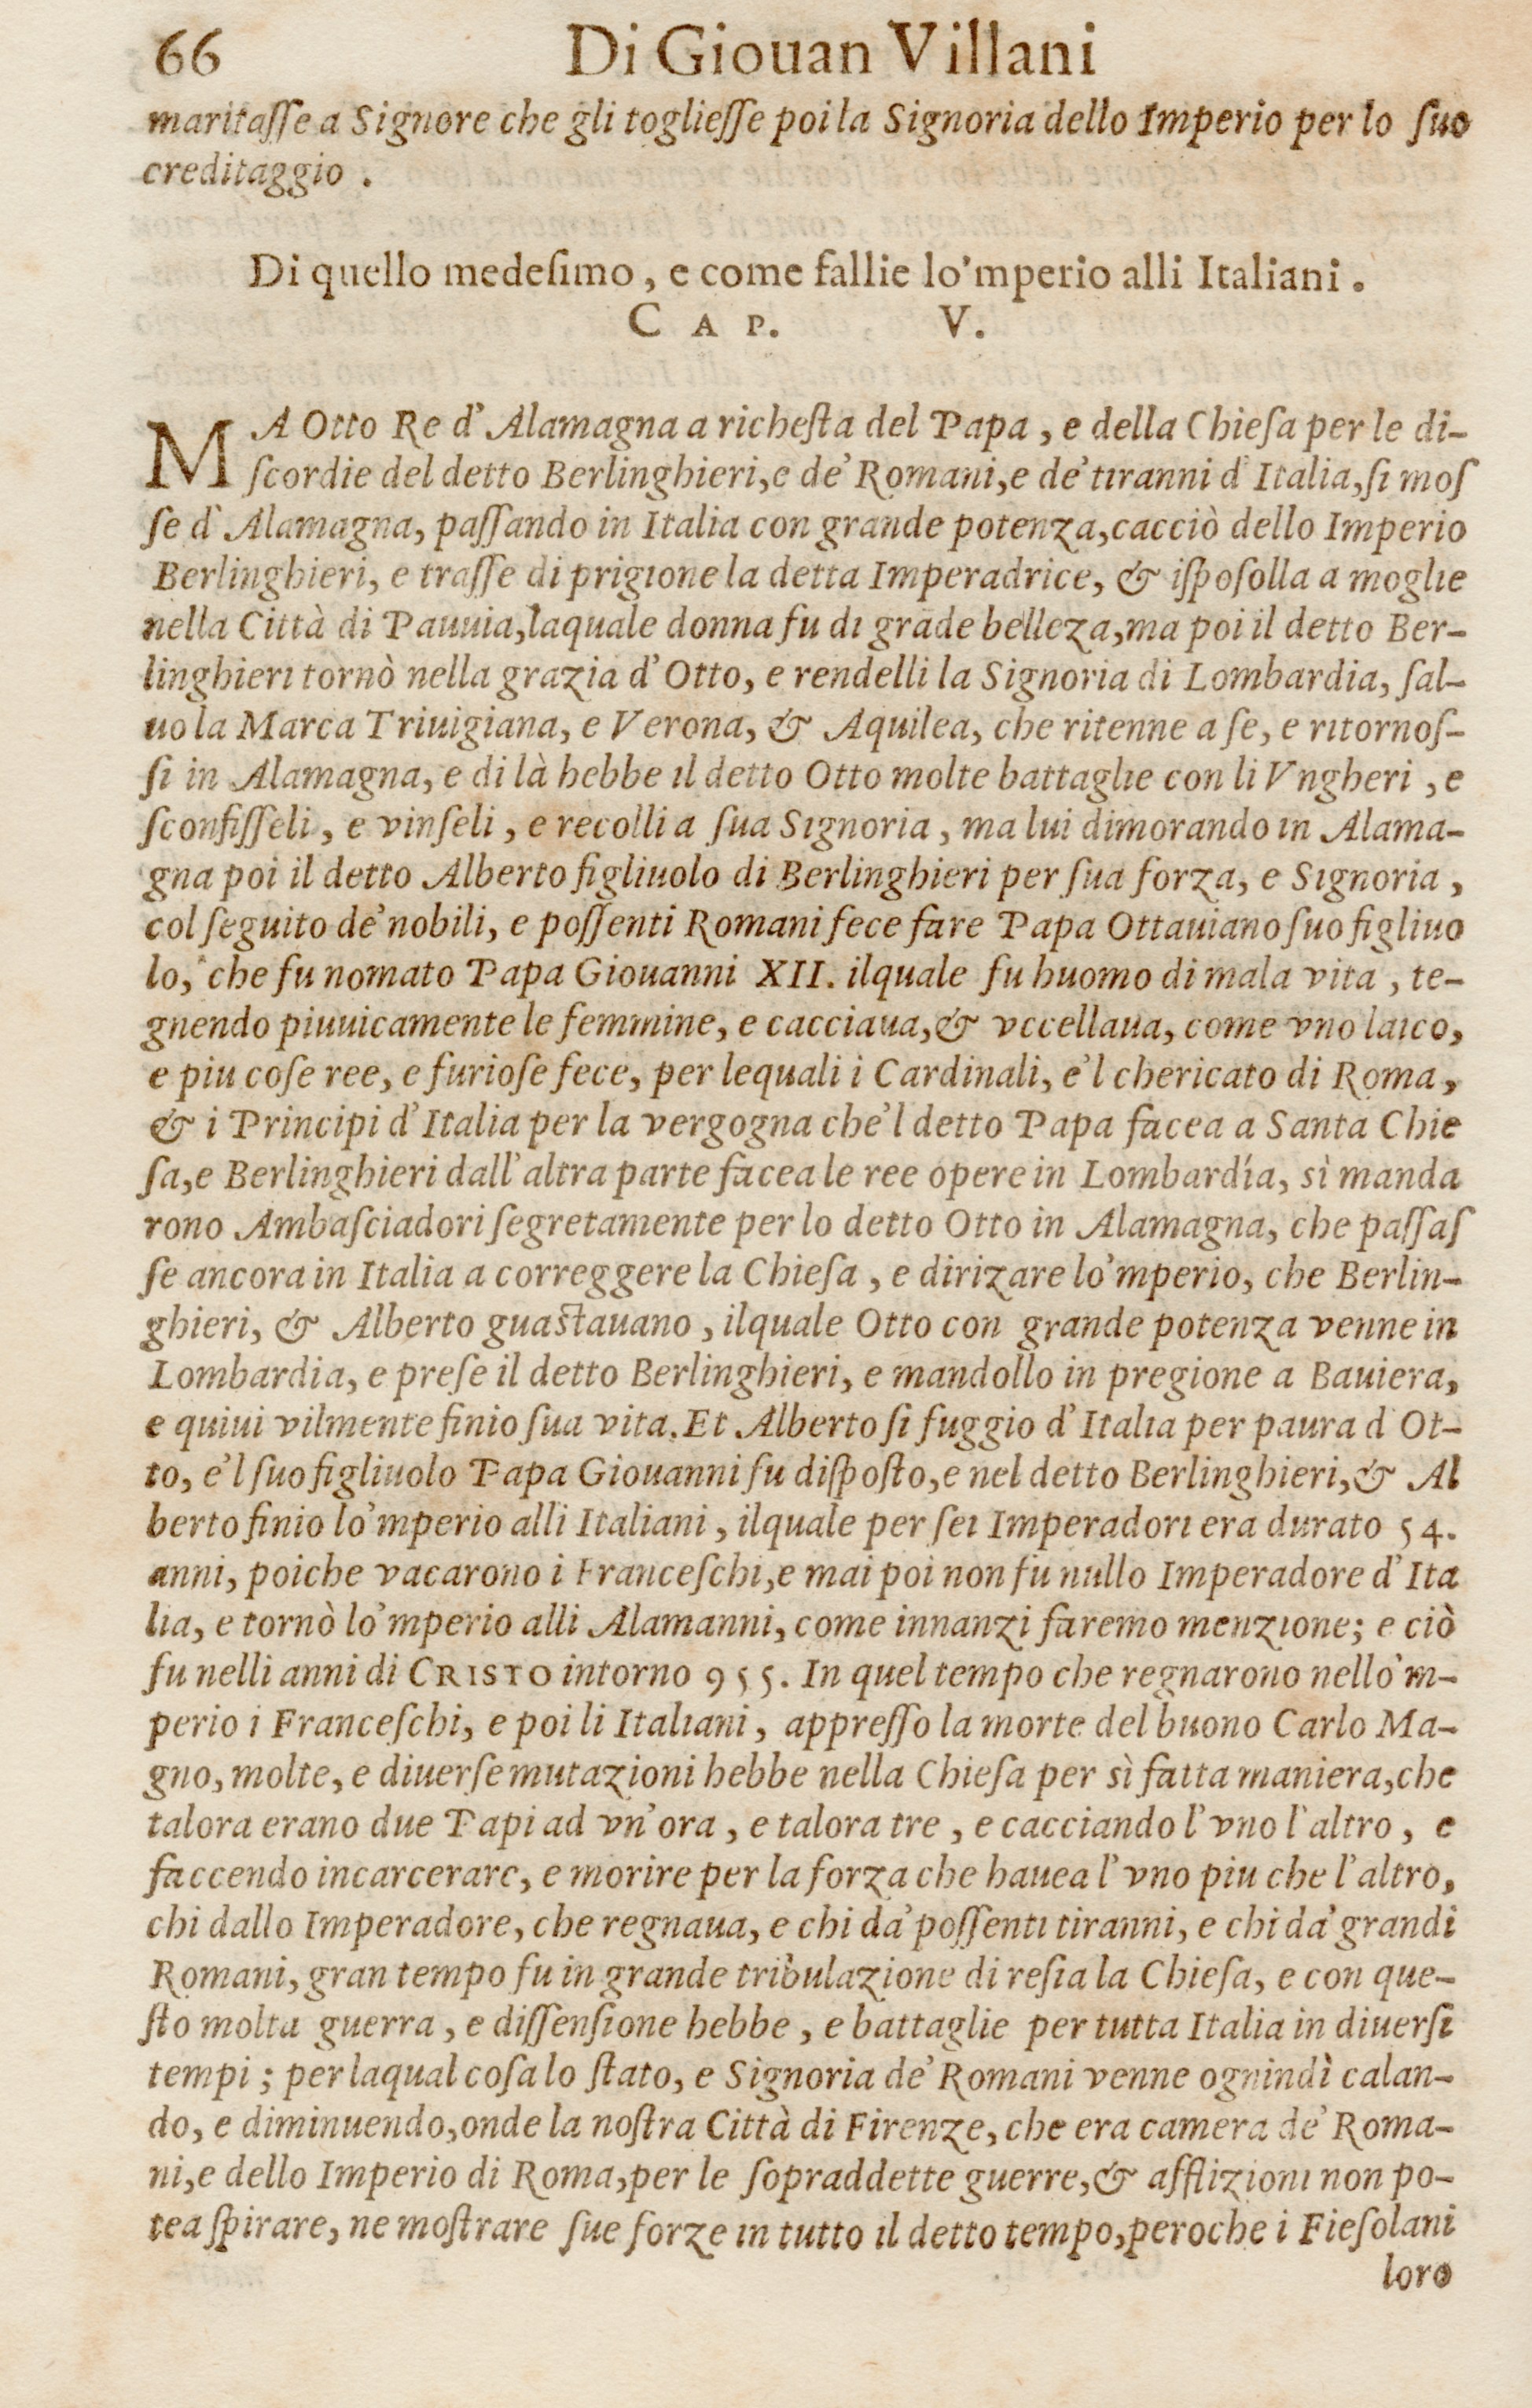 66 Di Giouan Villani
maritaſſe a Signore che gli toglieſſe poi la Signoria dello Imperio per lo ſuo
creditaggio .
Di quello medeſimo , e come fallie lo'mperio alli Italiani .
CAP. V.
MA Otto Re d' Alamagna a richeſta del Papa , e della Chieſa per le di-
ſcordie del detto Berlinghieri,e de' Romani,e de' tiranni d' Italia,ſi moſ
ſe d' Alamagna, paſſando in Italia con grande potenza,cacciò dello Imperio
Berlinghieri, e traſſe di prigione la detta Imperadrice, & iſpoſolla a moglie
nella Città di Pauuia,laquale donna fu di grāde belleza,ma poi il detto Ber-
linghieri tornò nella grazia d' Otto, e rendelli la Signoria di Lombardia, ſal-
uo la Marca Triuigiana, e Verona, & Aquilea, che ritenne a ſe, e ritornoſ-
ſi in Alamagna, e di là hebbe il detto Otto molte battaglie con li Vngheri , e
ſconfiſſeli , e vinſeli , e recolli a ſua Signoria , ma lui dimorando in Alama-
gna poi il detto Alberto figliuolo di Berlinghieri per ſua forza, e Signoria ,
col ſeguito de' nobili, e poſſenti Romani fece fare Papa Ottauiano ſuo figliuo
lo, che fu nomato Papa Giouanni XII. ilquale fu huomo di mala vita , te-
gnendo piuuicamente le femmine, e cacciaua,& vccellaua, come vno laico,
e piu coſe ree, e furioſe fece, per lequali i Cardinali, e'l chericato di Roma,
& i Principi d' Italia per la vergogna che'l detto Papa facea a Santa Chie
ſa,e Berlinghieri dall' altra parte facea le ree opere in Lombardía, sì manda
rono Ambaſciadori ſegretamente per lo detto Otto in Alamagna, che paſſaſ
ſe ancora in Italia a correggere la Chieſa , e dirizare lo'mperio, che Berlin-
ghieri, & Alberto guaſtauano , ilquale Otto con grande potenza venne in
Lombardia, e preſe il detto Berlinghieri, e mandollo in pregione a Bauiera,
e quiui vilmente finio ſua vita. Et Alberto ſi fuggio d' Italia per paura d' Ot-
to, e'l ſuo figliuolo Papa Giouanni fu diſpoſto,e nel detto Berlinghieri,& Al
berto finio lo'mperio alli Italiani , ilquale per ſei Imperadori era durato 54.
anni, poiche vacarono i Franceſchi,e mai poi non fu nullo Imperadore d' Ita
lia, e tornò lo'mperio alli Alamanni, come innanzi faremo menzione; e ciò
fu nelli anni di CRISTO intorno 955. In quel tempo che regnarono nello'm-
perio i Franceſchi, e poi li Italiani , appreſſo la morte del buono Carlo Ma-
gno, molte, e diuerſe mutazioni hebbe nella Chieſa per sì fatta maniera,che
talora erano due Papi ad vn' ora , e talora tre , e cacciando l' vno l' altro , e
faccendo incarcerare, e morire per la forza che hauea l' vno piu che l' altro,
chi dallo Imperadore, che regnaua, e chi da' poſſenti tiranni, e chi da' grandi
Romani, gran tempo fu in grande tribulazione di reſia la Chieſa, e con que-
ſto molta guerra , e diſſenſione hebbe , e battaglie per tutta Italia in diuerſi
tempi ; per laqual coſa lo ſtato, e Signoria de' Romani venne ognindì calan-
do, e diminuendo,onde la noſtra Città di Firenze, che era camera de' Roma-
ni,e dello Imperio di Roma,per le ſopraddette guerre,& afflizioni non po-
tea ſpirare, ne moſtrare ſue forze in tutto il detto tempo,peroche i Fieſolani
loro